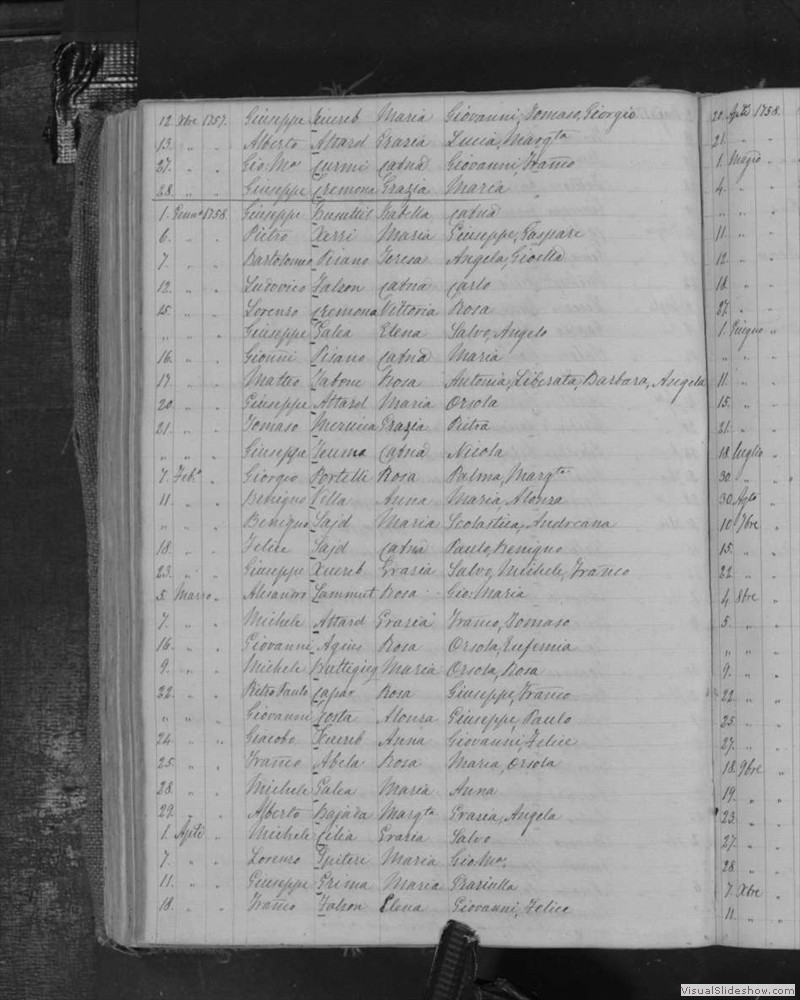 12. Xbre 1757. Giuseppe Xuereb Maria Giovanni, Tomaso, Giorgio
13. " " Alberto Attard Grazia Lucia, Margta
27. " " Gio: Ma Curmi Catna Giovanni, Franco
28. " " Giuseppe Cremona Grazia Maria
1. Genno 1758. Giuseppe Isabella Catna
6. " " Pietro Xerri Maria Giuseppe, Gaspare
7. " " Bartolomeo Pisano Teresa Angela, Gioella
12. " " Ludovico Falson Catna Carlo
15. " " Lorenzo Cremona Vittoria Rosa
" " " Giuseppe Galea Elena Salvo, Angelo
16. " " Gionni Pisano Catna Maria
17. " " Matteo Tabone Rosa Antonia, Liberata, Barbara, Angela
20. " " Giuseppe Attard Maria Orsola
21. " " Tomaso Mercieca Grazia Pietra
" " " Giuseppe Teuma Catna Nicola
7. Feb.o " Giorgio Portelli Rosa Palma, Margta
11. " " Benigno Villa Anna Maria, Alonza
" " " Benigno Sajd Maria Scolastica, Andreana
18. " " Felice Sajd Catna Paulo, Benigno
23. " " Giuseppe Xuereb Grazia Salvo, Michele, Franco
5. Marzo " Alesandro Cammut Rosa Gio: Maria
7. " " Michele Attard Grazia Franco, Tomaso
16. " " Giovanni Agius Rosa Orsola, Eufemia
9. " " Michele Buttigieg Maria Orsola, Rosa
22. " " Pietro Paulo Rosa Giuseppe, Franco
" " " Giovanni Alonza Giuseppe, Paulo
24. " " Giacobo Xuereb Anna Giovanni, Felice
25. " " Franco Abela Rosa Maria, Orsola
28. " " Michele Galea Maria Anna
29. " " Alberto Bajada Margta Grazia, Angela
1. Aple " Michele Cilia Grazia Salvo
7. " " Lorenzo Spiteri Maria Gio Ma.
11. " " Giuseppe Grima Maria Graziulla
18. " " Franco Falson Elena Giovanni, Felice
20. Aple 1758.
21. " "
1. Maggio "
4. " "
" " "
11. " "
12. " "
18. " "
27. " "
1. Giugno "
" " "
11. " "
15. " "
21. " "
18. Luglio "
30. " "
30. Agto "
10. 7bre "
15. " "
22. " "
4. 8bre "
5. " "
" " "
9. " "
22. " "
25. " "
27. " "
18. 9bre "
19. " "
23. " "
27. " "
28. " "
7. Xbre "
11. " "
VisualSlideshow.com